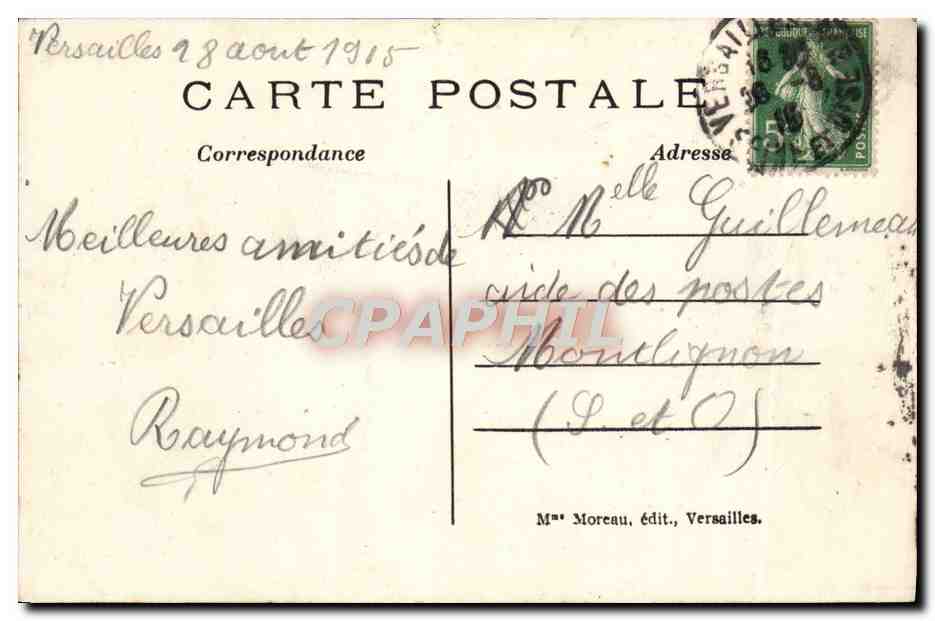 Versailles 28 aout 1915
CARTE POSTALE
Correspondance
Adresse
Meilleures amitiés de
Versailles
Raymond
Melle Guillemeau
aide des postes
Montlignon
(S. et O)
Mme Moreau, édit., Versailles.
CPAPHIL
VERSAILLES
POSTES